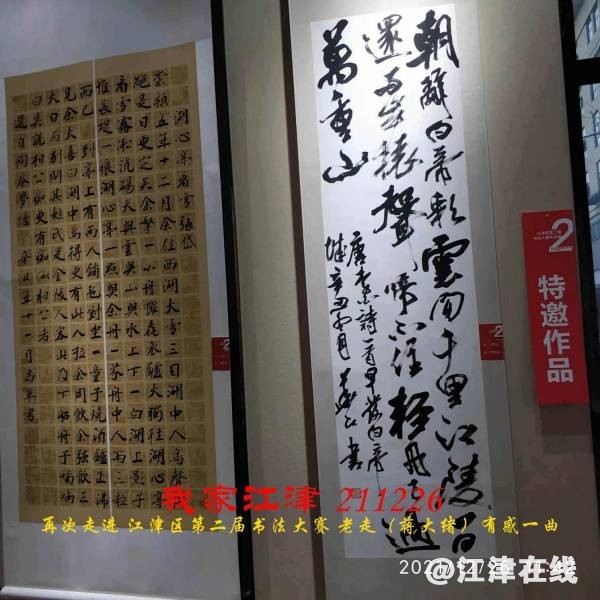 湖心亭看雪張岱
崇禎五年十二月余住西湖大雪三日湖中人鳥聲俱
絕是日更定矣余拏一小舟擁毳衣爐火獨往湖心亭
看雪霧凇沆碭天與雲與山與水上下一白湖上影子
惟長堤一痕湖心亭一點與余舟一芥舟中人兩三粒
而已到亭上有兩人鋪氈對坐一童子燒酒爐正沸
見余大喜曰湖中焉得更有此人拉余同飲余強飲三
大白而別問其姓氏是金陵人客此及下船舟子喃喃
曰莫說相公癡更有癡似相公者
選自陶庵夢憶 辛丑年十一月
朝辭白帝彩雲間千里江陵一日
還兩岸猿聲啼不住輕舟已過
萬重山
唐李白詩一首早發白帝
城辛丑
2
特邀作品
我家江津 211226
再次走进 江津区第二届书法大赛 老走（蒋大绪）有感一曲
@江津在线